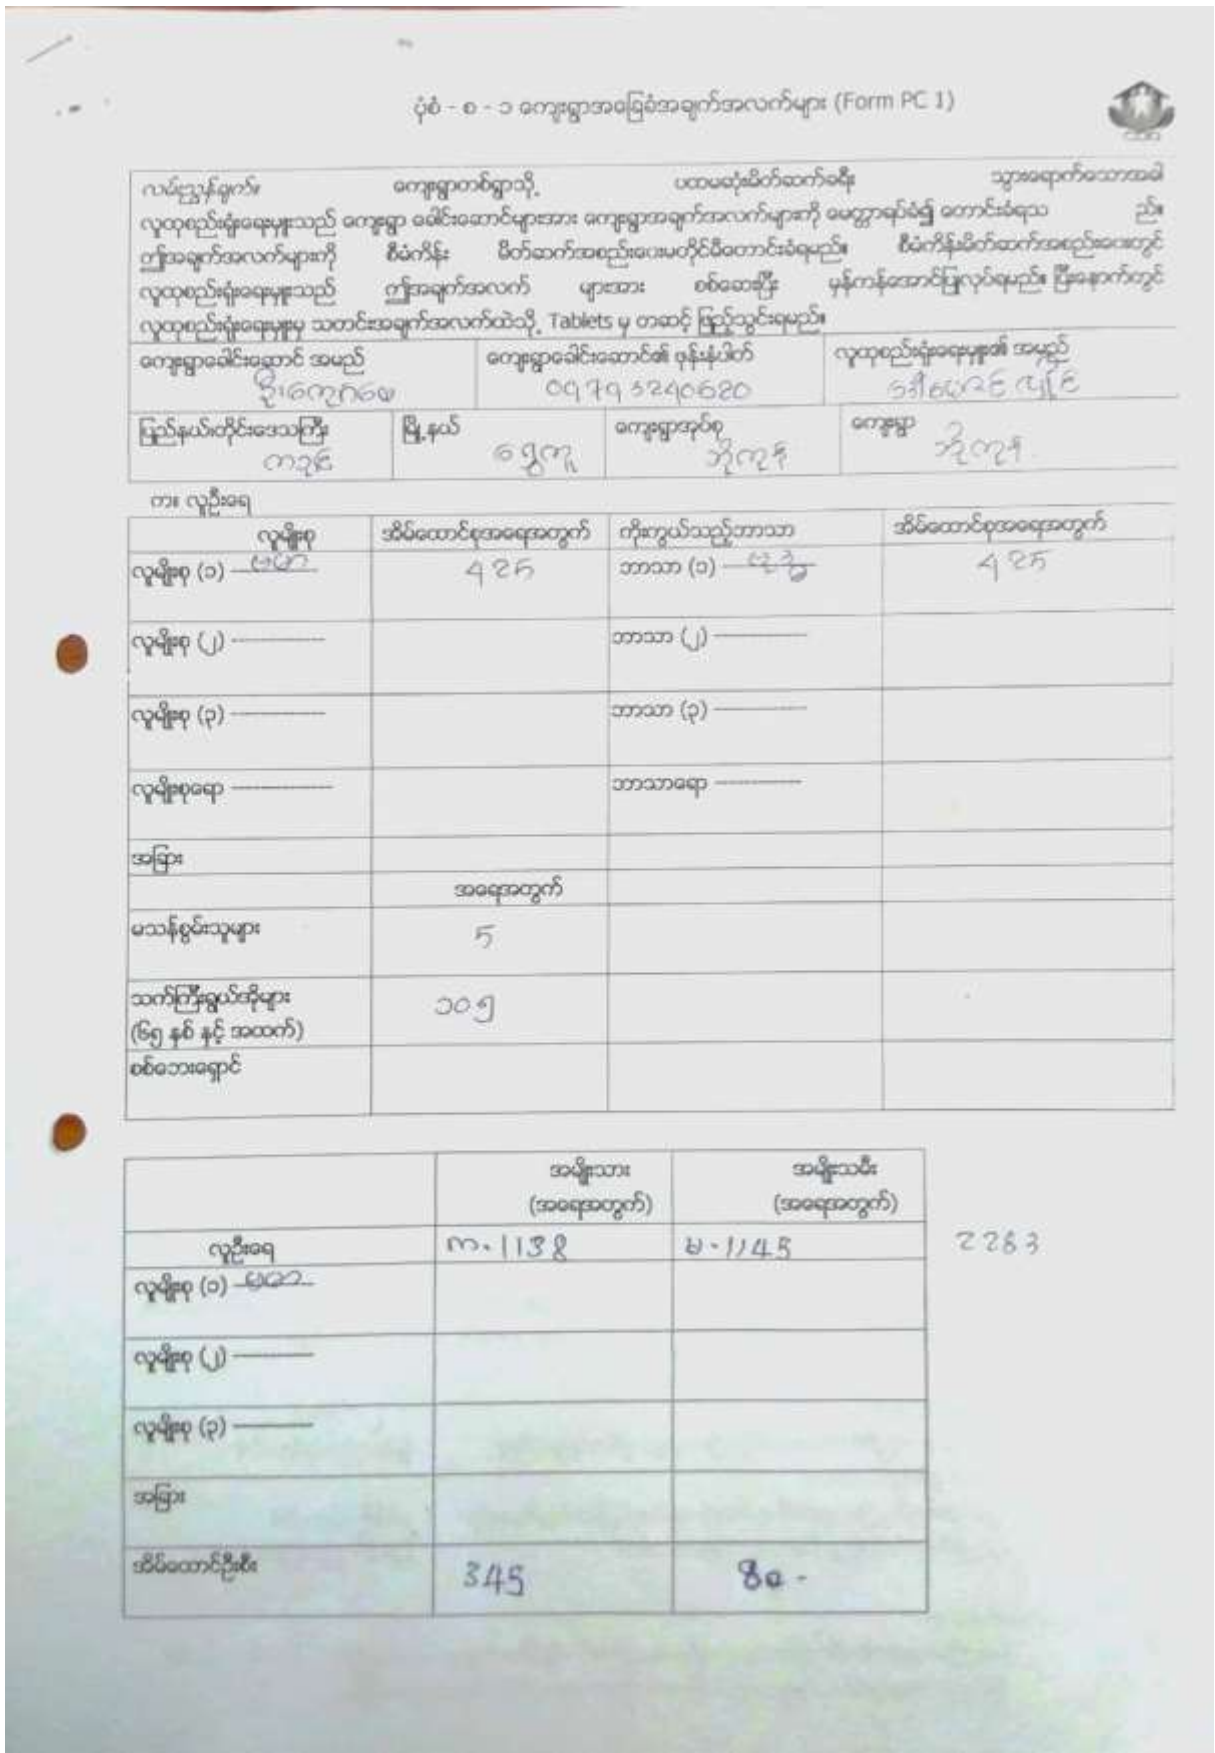 ပုံစံ - စ - ၁ ကျေးရွာအခြေခံအချက်အလက်များ (Form PC 1)
လမ်းညွှန်ချက်။ ကျေးရွာတစ်ရွာသို့ ပထမဆုံးမိတ်ဆက်ခရီး သွားရောက်သောအခါ
လူထုစည်းရုံးရေးမှူးသည် ကျေးရွာ ခေါင်းဆောင်များအား ကျေးရွာအချက်အလက်များကို မေတ္တာရပ်ခံ၍ တောင်းခံရသ ည်။
ဤအချက်အလက်များကို စီမံကိန်း မိတ်ဆက်အစည်းဝေးမတိုင်မီတောင်းခံရမည်။ စီမံကိန်းမိတ်ဆက်အစည်းဝေးတွင်
လူထုစည်းရုံးရေးမှူးသည် ဤအချက်အလက် များအား စစ်ဆေးပြီး မှန်ကန်အောင်ပြုလုပ်ရမည်။ ပြီးနောက်တွင်
လူထုစည်းရုံးရေးမှူးမှ သတင်းအချက်အလက်ထဲသို့ Tablets မှ တဆင့် ဖြည့်သွင်းရမည်။
ကျေးရွာခေါင်းဆောင် အမည် ကျေးရွာခေါင်းဆောင်၏ ဖုန်းနံပါတ် လူထုစည်းရုံးရေးမှူး၏ အမည်
09793240620
ပြည်နယ်/တိုင်းဒေသကြီး မြို့နယ် ကျေးရွာအုပ်စု ကျေးရွာ
ကချင် ရွှေကူ ဘိုကုန် ဘိုကုန်
က။ လူဦးရေ
လူမျိုးစု အိမ်ထောင်စုအရေအတွက် ကိုးကွယ်သည့်ဘာသာ အိမ်ထောင်စုအရေအတွက်
လူမျိုးစု (၁) ဗမာ 425 ဘာသာ (၁) ဗုဒ္ဓ 425
လူမျိုးစု (၂) ---------- ဘာသာ (၂) ----------
လူမျိုးစု (၃) ---------- ဘာသာ (၃) ----------
လူမျိုးစုရော ---------- ဘာသာရော ----------
အခြား
အရေအတွက်
မသန်စွမ်းသူများ 5
သက်ကြီးရွယ်အိုများ ၁၀၅
(၆၅ နှစ် နှင့် အထက်)
စစ်ဘေးရှောင်
အမျိုးသား အမျိုးသမီး
(အရေအတွက်) (အရေအတွက်)
လူဦးရေ က.1138 မ.1145 2283
လူမျိုးစု (၁) ဗမာ
လူမျိုးစု (၂) ----------
လူမျိုးစု (၃) ----------
အခြား
အိမ်ထောင်ဦးစီး 345 80 -